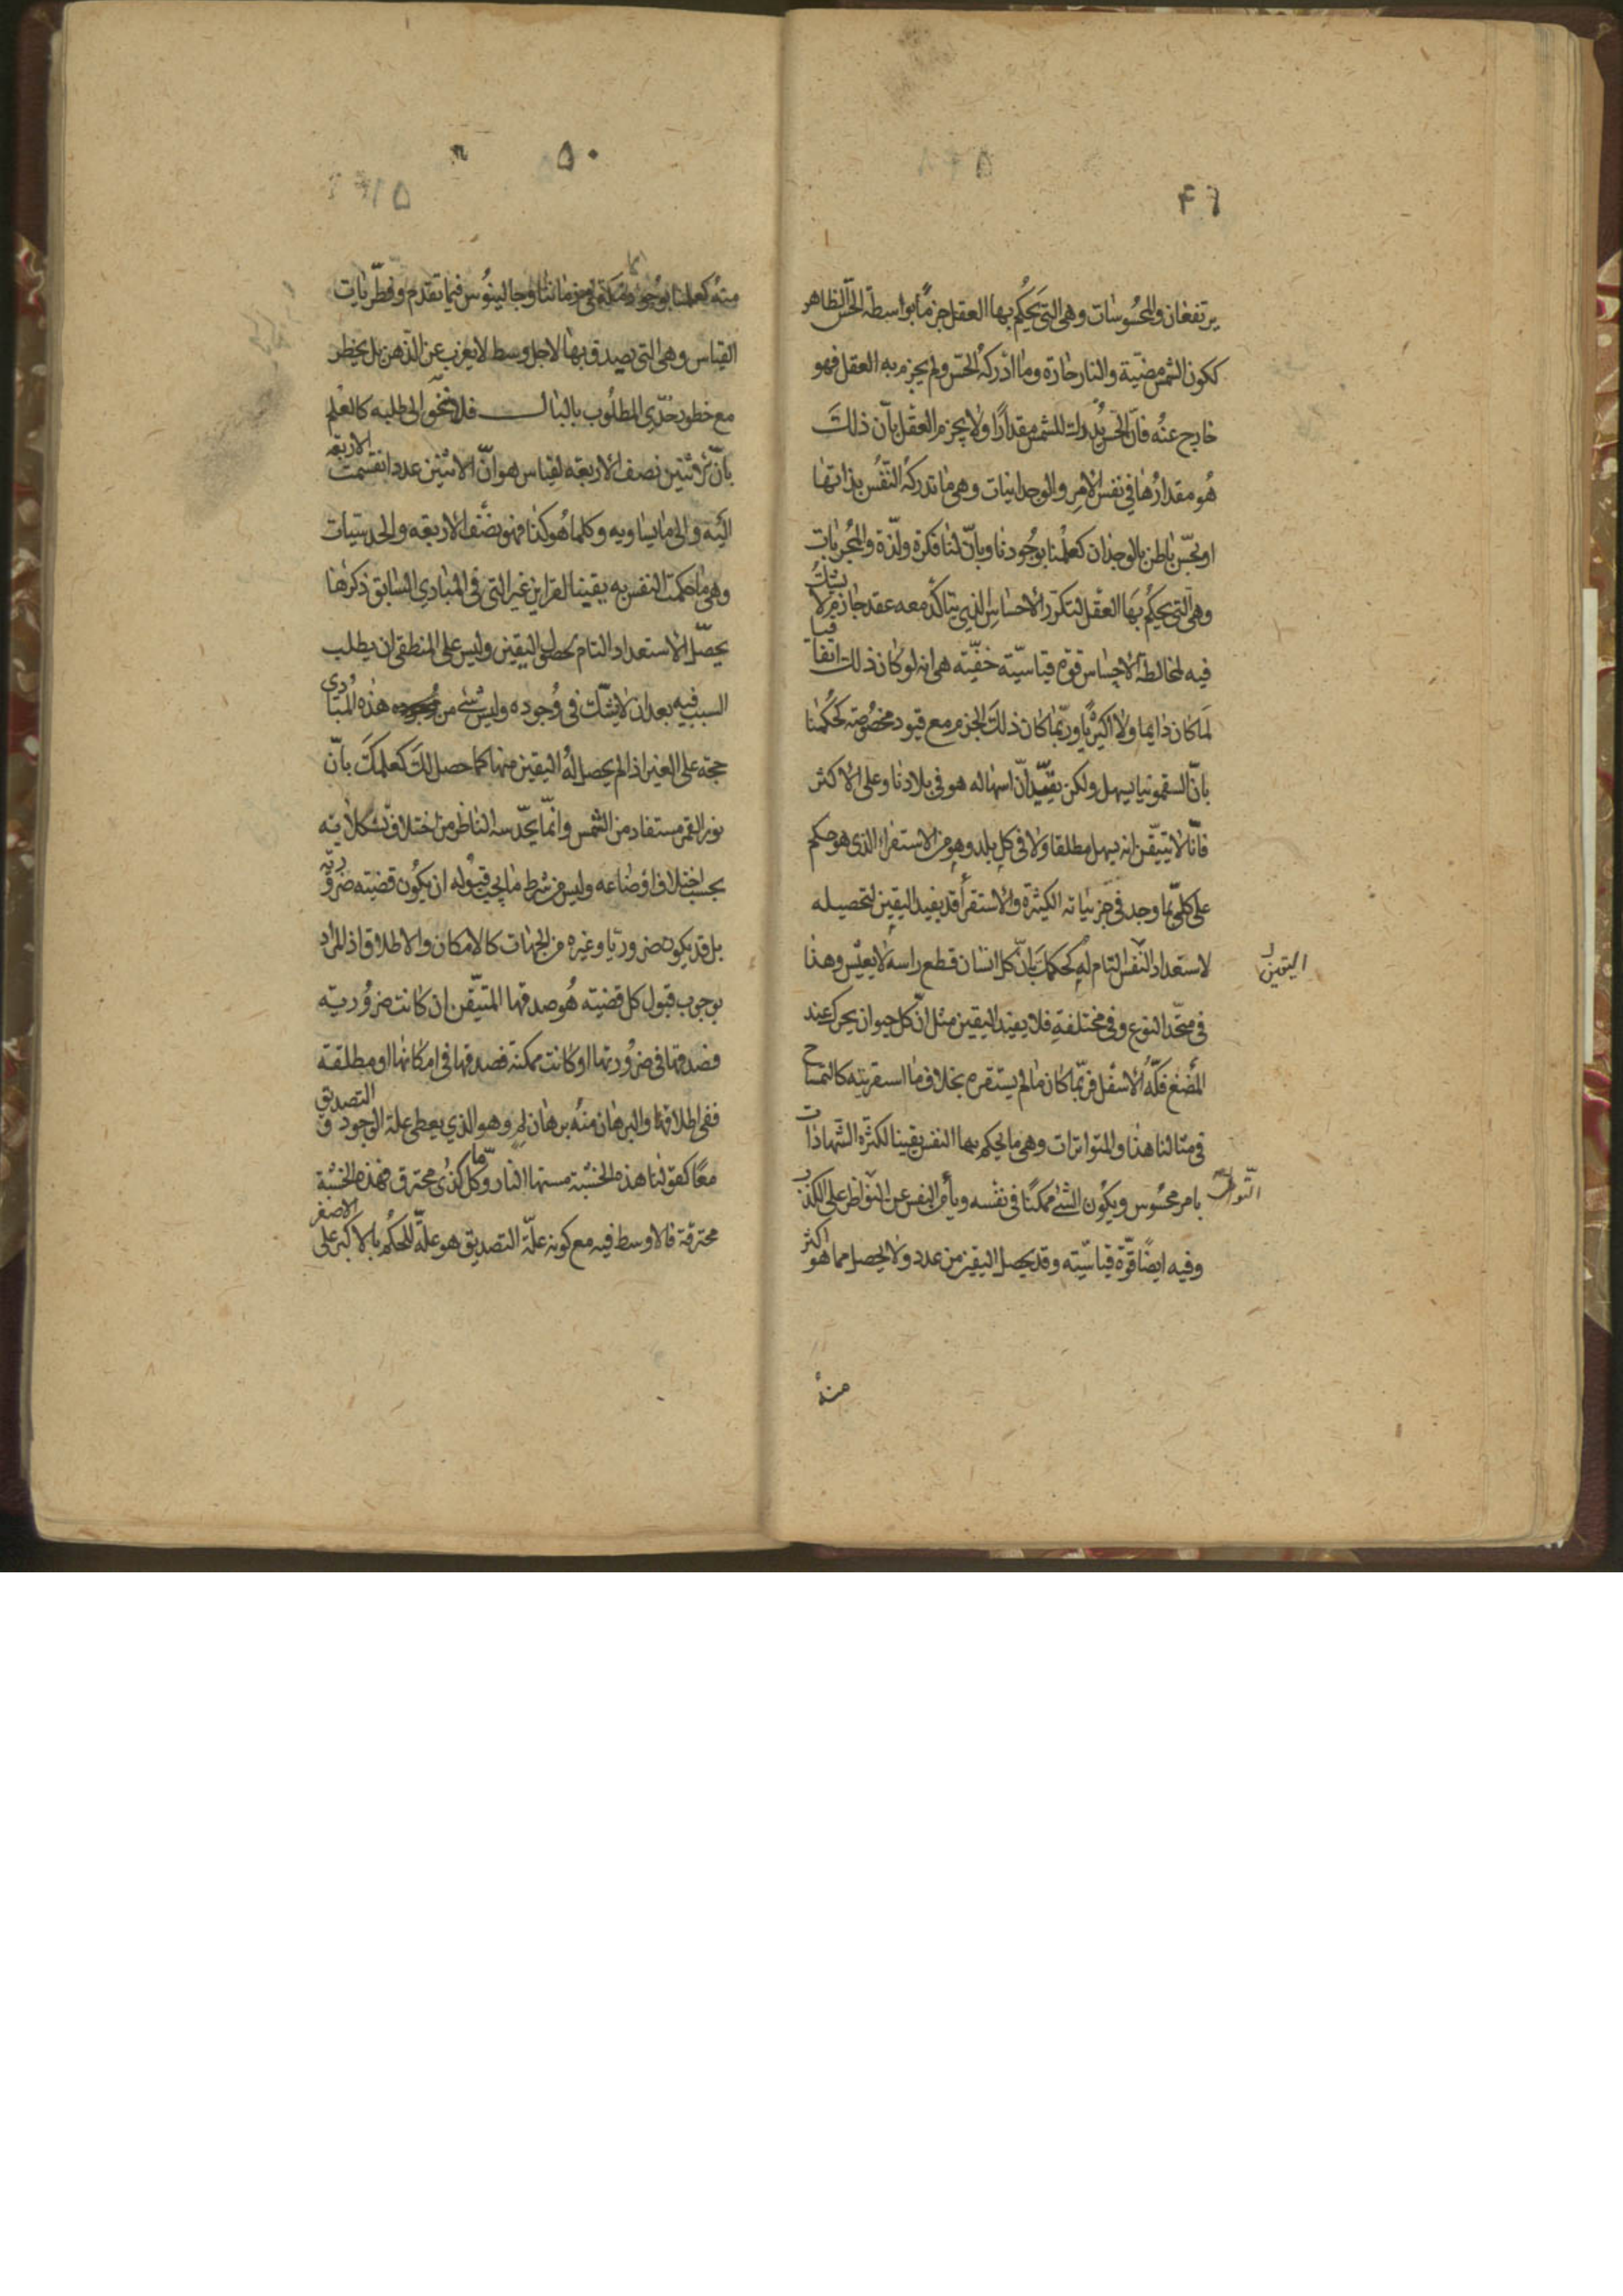 ٤٩
يرتفعان والمحسوسات وهى التى يحكم بها العقل جزمًا بواسطة الحسّ الظاهر
ككون الشمس مضيّة والنار حارة وما ادركه الحسّ ولم يجزم به العقل فهو
خارج عنه فانّ الحسّ يُدرك للشمس مقدارًا ولا يجزم العقل بانّ ذلك
هُو مقدارُها في نفس الامر والوجدانيات وهى ما تدركه النّفس بذاتها
او بحسّ باطن بالوجدان كعلمنا بوجودنا وبانّ لنا فكرة ولذّة والمجربات
وهى التى يحكم بها العقل لتكرّر الاحساس الذي يتأكّد معه عقد جازم لا يشك
فيه لمخالطة الاحساس قوة قياسيّة خفيّة هى انه لو كان ذلك اتفاقيا
لما كان دايما ولا اكثريًا وربّما كان ذلك الجزم مع قيود مخصُوصة كحكمنا
بانّ السقمونيا يسهل ولكن بقيد انّ اسهاله هو في بلادنا وعلى الاكثر
فانّا لا نتيقّن انه يسهل مطلقا ولا في كل بلد وهو من الاستقراء الذي هو حكم
على كلّى بما وجد في جزئياته الكثيرة والاستقرأ قد يفيد اليقين لتحصيله
لاستعداد النّفس التام له كحكمك بانّ كل انسان قطع راسه لا يعيش وهذا
اليقين
في متّحد النوع وفي مختلفة فلا يفيد اليقين مثل انّ كل حيوان يحرك عند
المضغ فكّه الاسفل فربّما كان ما لم يستقره بخلاف ما استقريته كالتمساح
في مثالنا هذا والمتواترات وهى ما يحكم بها النفس يقينا لكثرة الشهادات
بامر محسُوس ويكون الشئ ممكنًا في نفسه ويأمن النفس عن التواطئ على الكذب
التواطئ
وفيه ايضًا قوّة قياسيّته وقد يحصل اليقين من عدد ولا يحصل مما هو اكثر
منهُ
٥٠
منهُ كعلمنا بوجود مكة في زماننا وجالينُوس فيما تقدم وفطّريات
القياس وهى التى يصدق بها لاجل وسط لا يعزب عن الذهن بل يخطر
مع خطور حدّى المطلُوب بالبال فلا نحوّج الى طلبه كالعلم
بانّ الاثنين نصف الاربعة لقياس هو انّ الاثنين عدد انقسمت الاربعة
اليه والى ما يساويه وكلما هُو كذا فهو نصف الاربعة والحدسيّات
وهى ما حكمت النفس به يقينا لقراين غير التى في المبادي السابق ذكرها
يحصّل الاستعداد التام لحصول اليقين وليس على المنطقى ان يطلب
السبب فيه بعد ان لا يشك في وُجوده وليس شئ من هذه المبادى
حجة على الغير اذا لم يحصل لهُ اليقين منها كما حصل لك كعلمك بانّ
نور القمر مستفاد من الشمس وانّما يحدّسه الناظر من اختلاف تشكلاته
بحسب اختلاف اوضاعه وليس من شرط ما يجب قبُوله ان يكُون قضيته ضروريّة
بل قد يكون ضروريًا وغيره من الجهات كالامكان والاطلاق اذ المراد
بوجوب قبول كل قضيته هُو صدقها المتيقّن ان كانت ضرُوريته
فصدقها في ضرُورتها او كانت ممكنة فصدقها في امكانها او مطلقة
ففى اطلاقها والبرهان منهُ برهان لِم وهو الذي يعطى علة الوجود و التصديق
معًا كقولنا هذه الخشبة مستها النار وكل ما كذى محترق فهذه الخشبة
محترقة فالاوسط فيه مع كونه علّة التصديق هو علّة للحكم بالاكبر على الاصغر